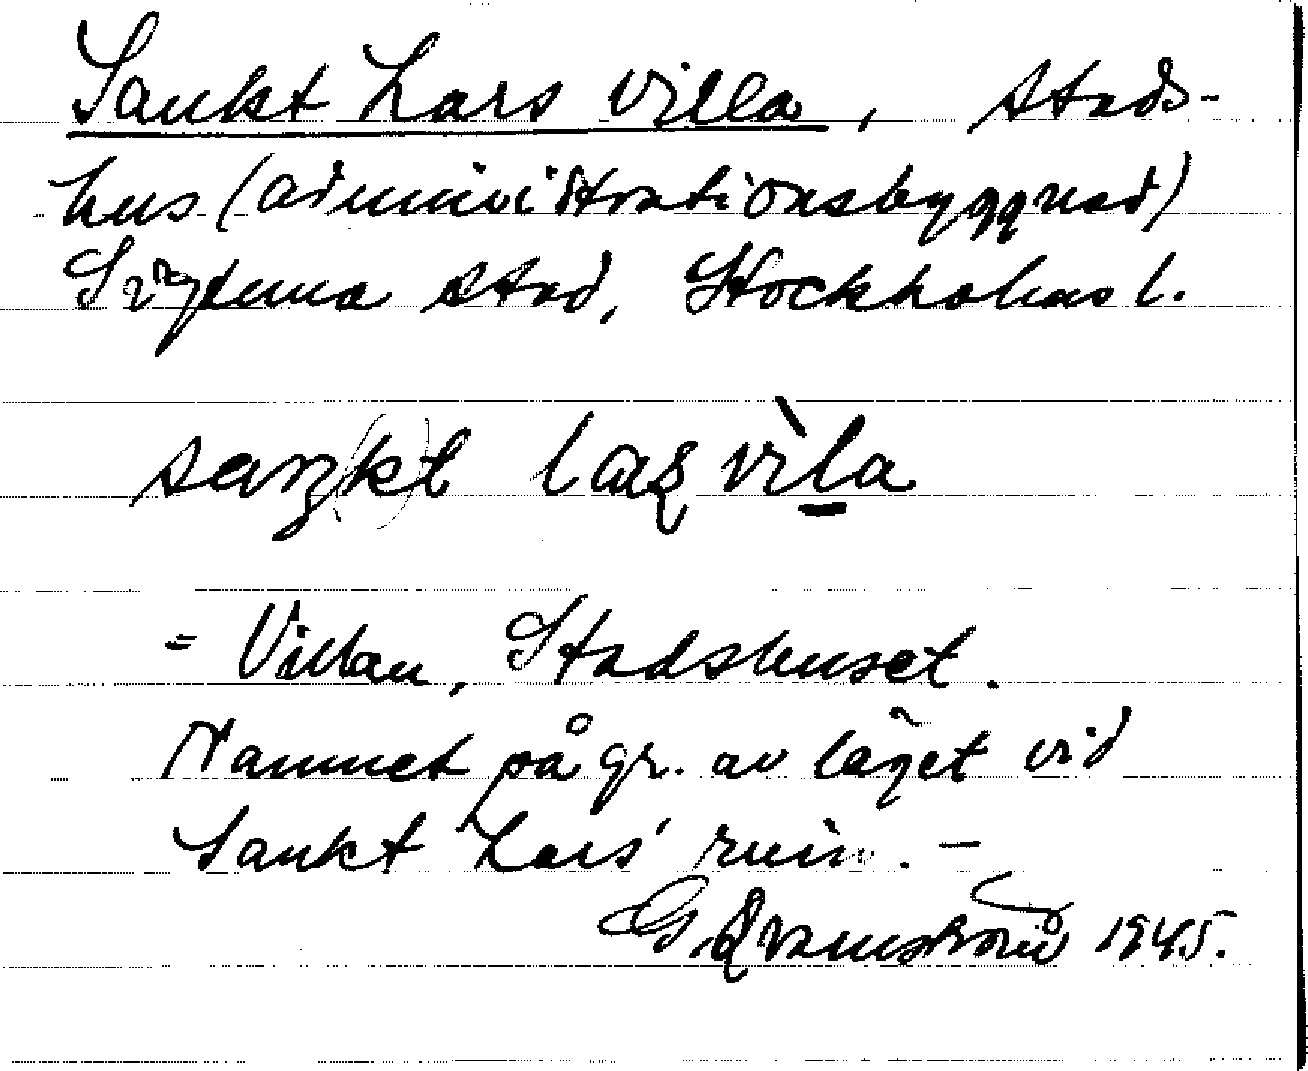 Sankt Lars villa, stads-
hus (administrationsbyggnad)
Sigtuna stad, Stockholms l.
saŋ(k)t laʂ vìla
= Villan, Stadshuset.
Namnet på gr. av läget vid
Sankt Lars' ruin. –
G Qvarnström 1945.